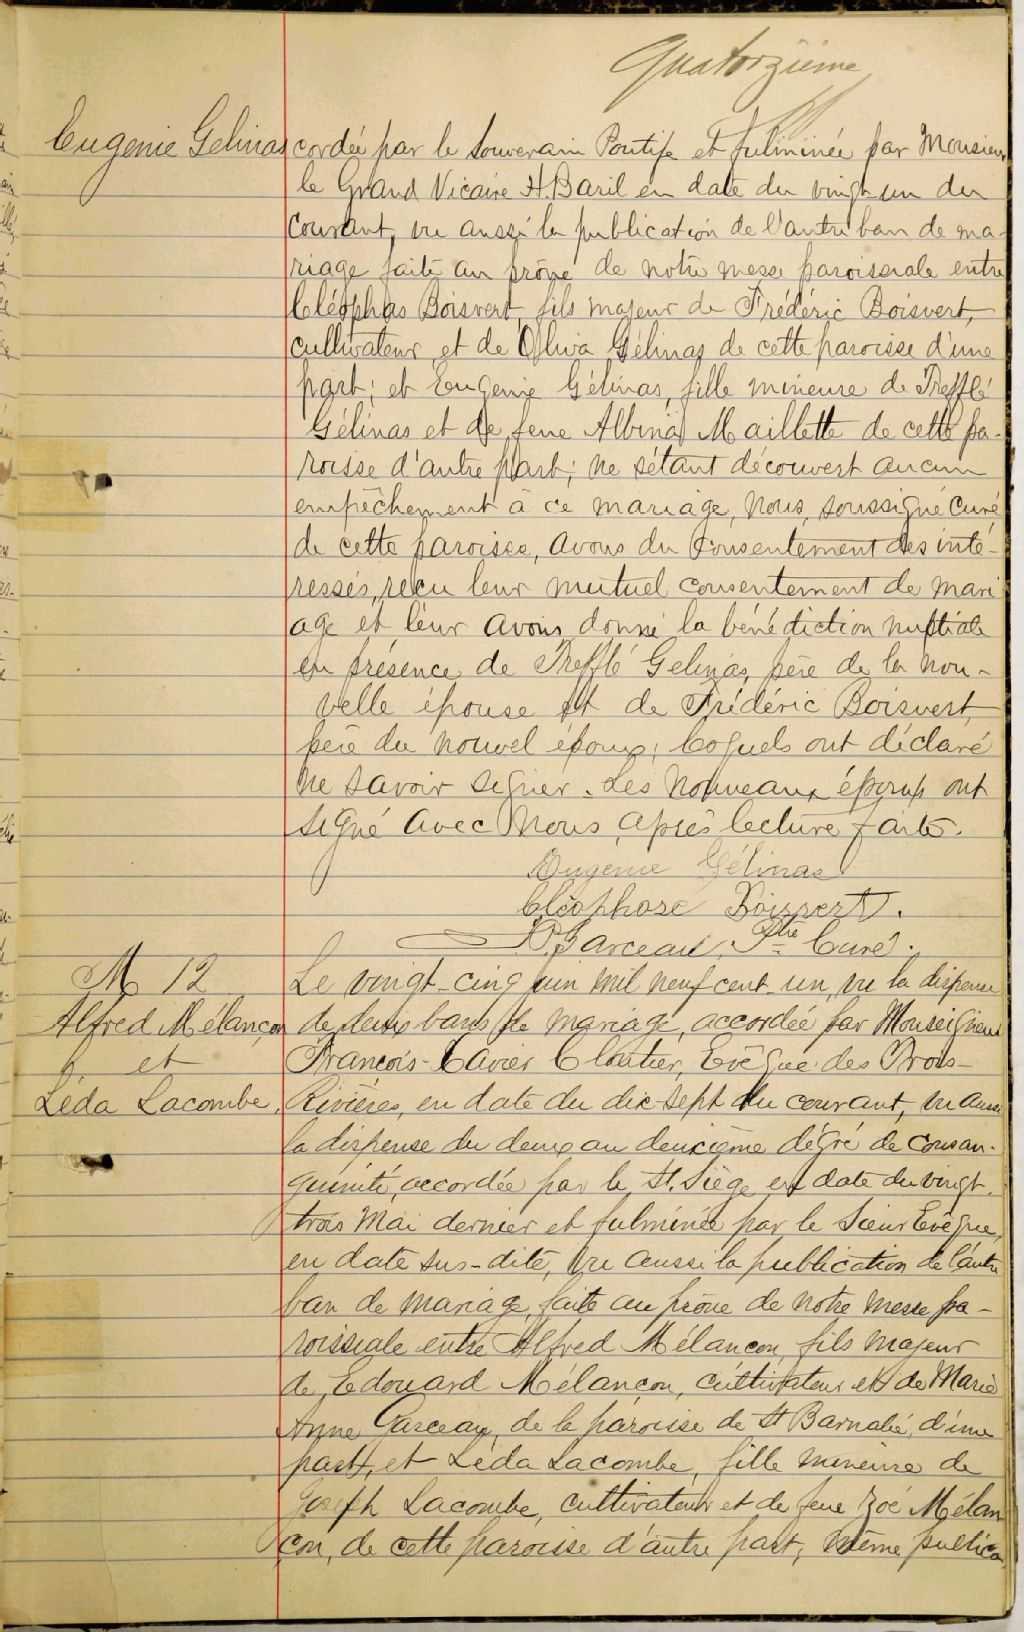 Quatorzième
Eugenie Gelinas cordée par le Souverain Pontife et fulminée par Monsieur
le Grand Vicaire H. Baril en date du vingt un du
courant, vu aussi la publication de l'autre ban de ma-
riage faite au prône de notre messe paroissiale entre
Cléophas Boisvert, fils majeur de Frédéric Boisvert,
cultivateur, et de Oliva Gélinas de cette paroisse d'une
part; et Eugenie Gélinas, fille mineure de Trefflé
Gélinas et de feue Albina Maillette de cette pa-
roisse d'autre part; ne s'étant découvert aucun
empêchement à ce mariage, Nous, soussigné Curé
de cette paroisse, avons du consentement des inté-
ressés, reçu leur mutuel consentement de mari
age et leur avons donné la bénédiction nuptiale
en présence de Trefflé Gelinas, père de la nou-
velle épouse et de Frédéric Boisvert,
père du nouvel époux, lesquels ont déclaré
ne savoir signer. Les nouveaux époux ont
signé avec Nous, après lecture faite.
Eugenie Gélinas
Cléophase Boisvert.
Garceau, Ptre Curé.
M 12
Alfred Mélançon
et
Léda Lacombe.
Le vingt-cinq juin mil neuf cent un, vu la dispense
de deux bans de mariage, accordée par Monseigneur
François-Xavier Cloutier, Evêque des Trois-
Rivières, en date du dix-sept du courant, vu aussi
la dispense du deux au deuxième dégré de consan-
guinité, accordée par le St. Siège en date du vingt-
trois Mai dernier et fulminée par le Sieur Evêque,
en date sus-dite, vu aussi la publication de l'autre
ban de mariage, faite au prône de notre messe pa-
roissiale entre Alfred Mélançon, fils majeur
de Edouard Mélançon, cultivateur et de Marie
Anne Garceau, de la paroisse de St Barnabé, d'une
part, et Léda Lacombe, fille mineure de
Joseph Lacombe, cultivateur et de feue Zoé Mélan
çon, de cette paroisse d'autre part, même publica